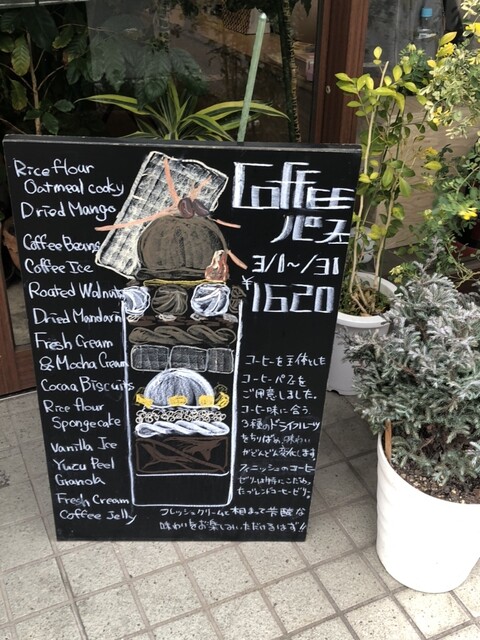 Rice flour
Oatmeal cooky
Dried Mango
Coffee Beans
Coffee Ice
Roated Walnuts
Dried Mandarin
Fresh Cream
& Mocha Cream
Cocoa Biscuits
Rice flour
Spongecake
Vanilla Ice
Yuzu Peel
Granola
Fresh Cream
Coffee Jelly
Coffee
パフェ
3/1~/31
¥1620
コーヒーを主体とした
コーヒーパフェを
ご用意しました。
コーヒー味に合う
3種のドライフルーツ
をちりばめ、味わい
がどんどん変化します。
フィニッシュのコーヒー
ゼリーは特にこだわっ
たブレンドコーヒーゼリー。
フレッシュクリームと相まって芳醇な
味わりをお楽しみいただけるはず!!